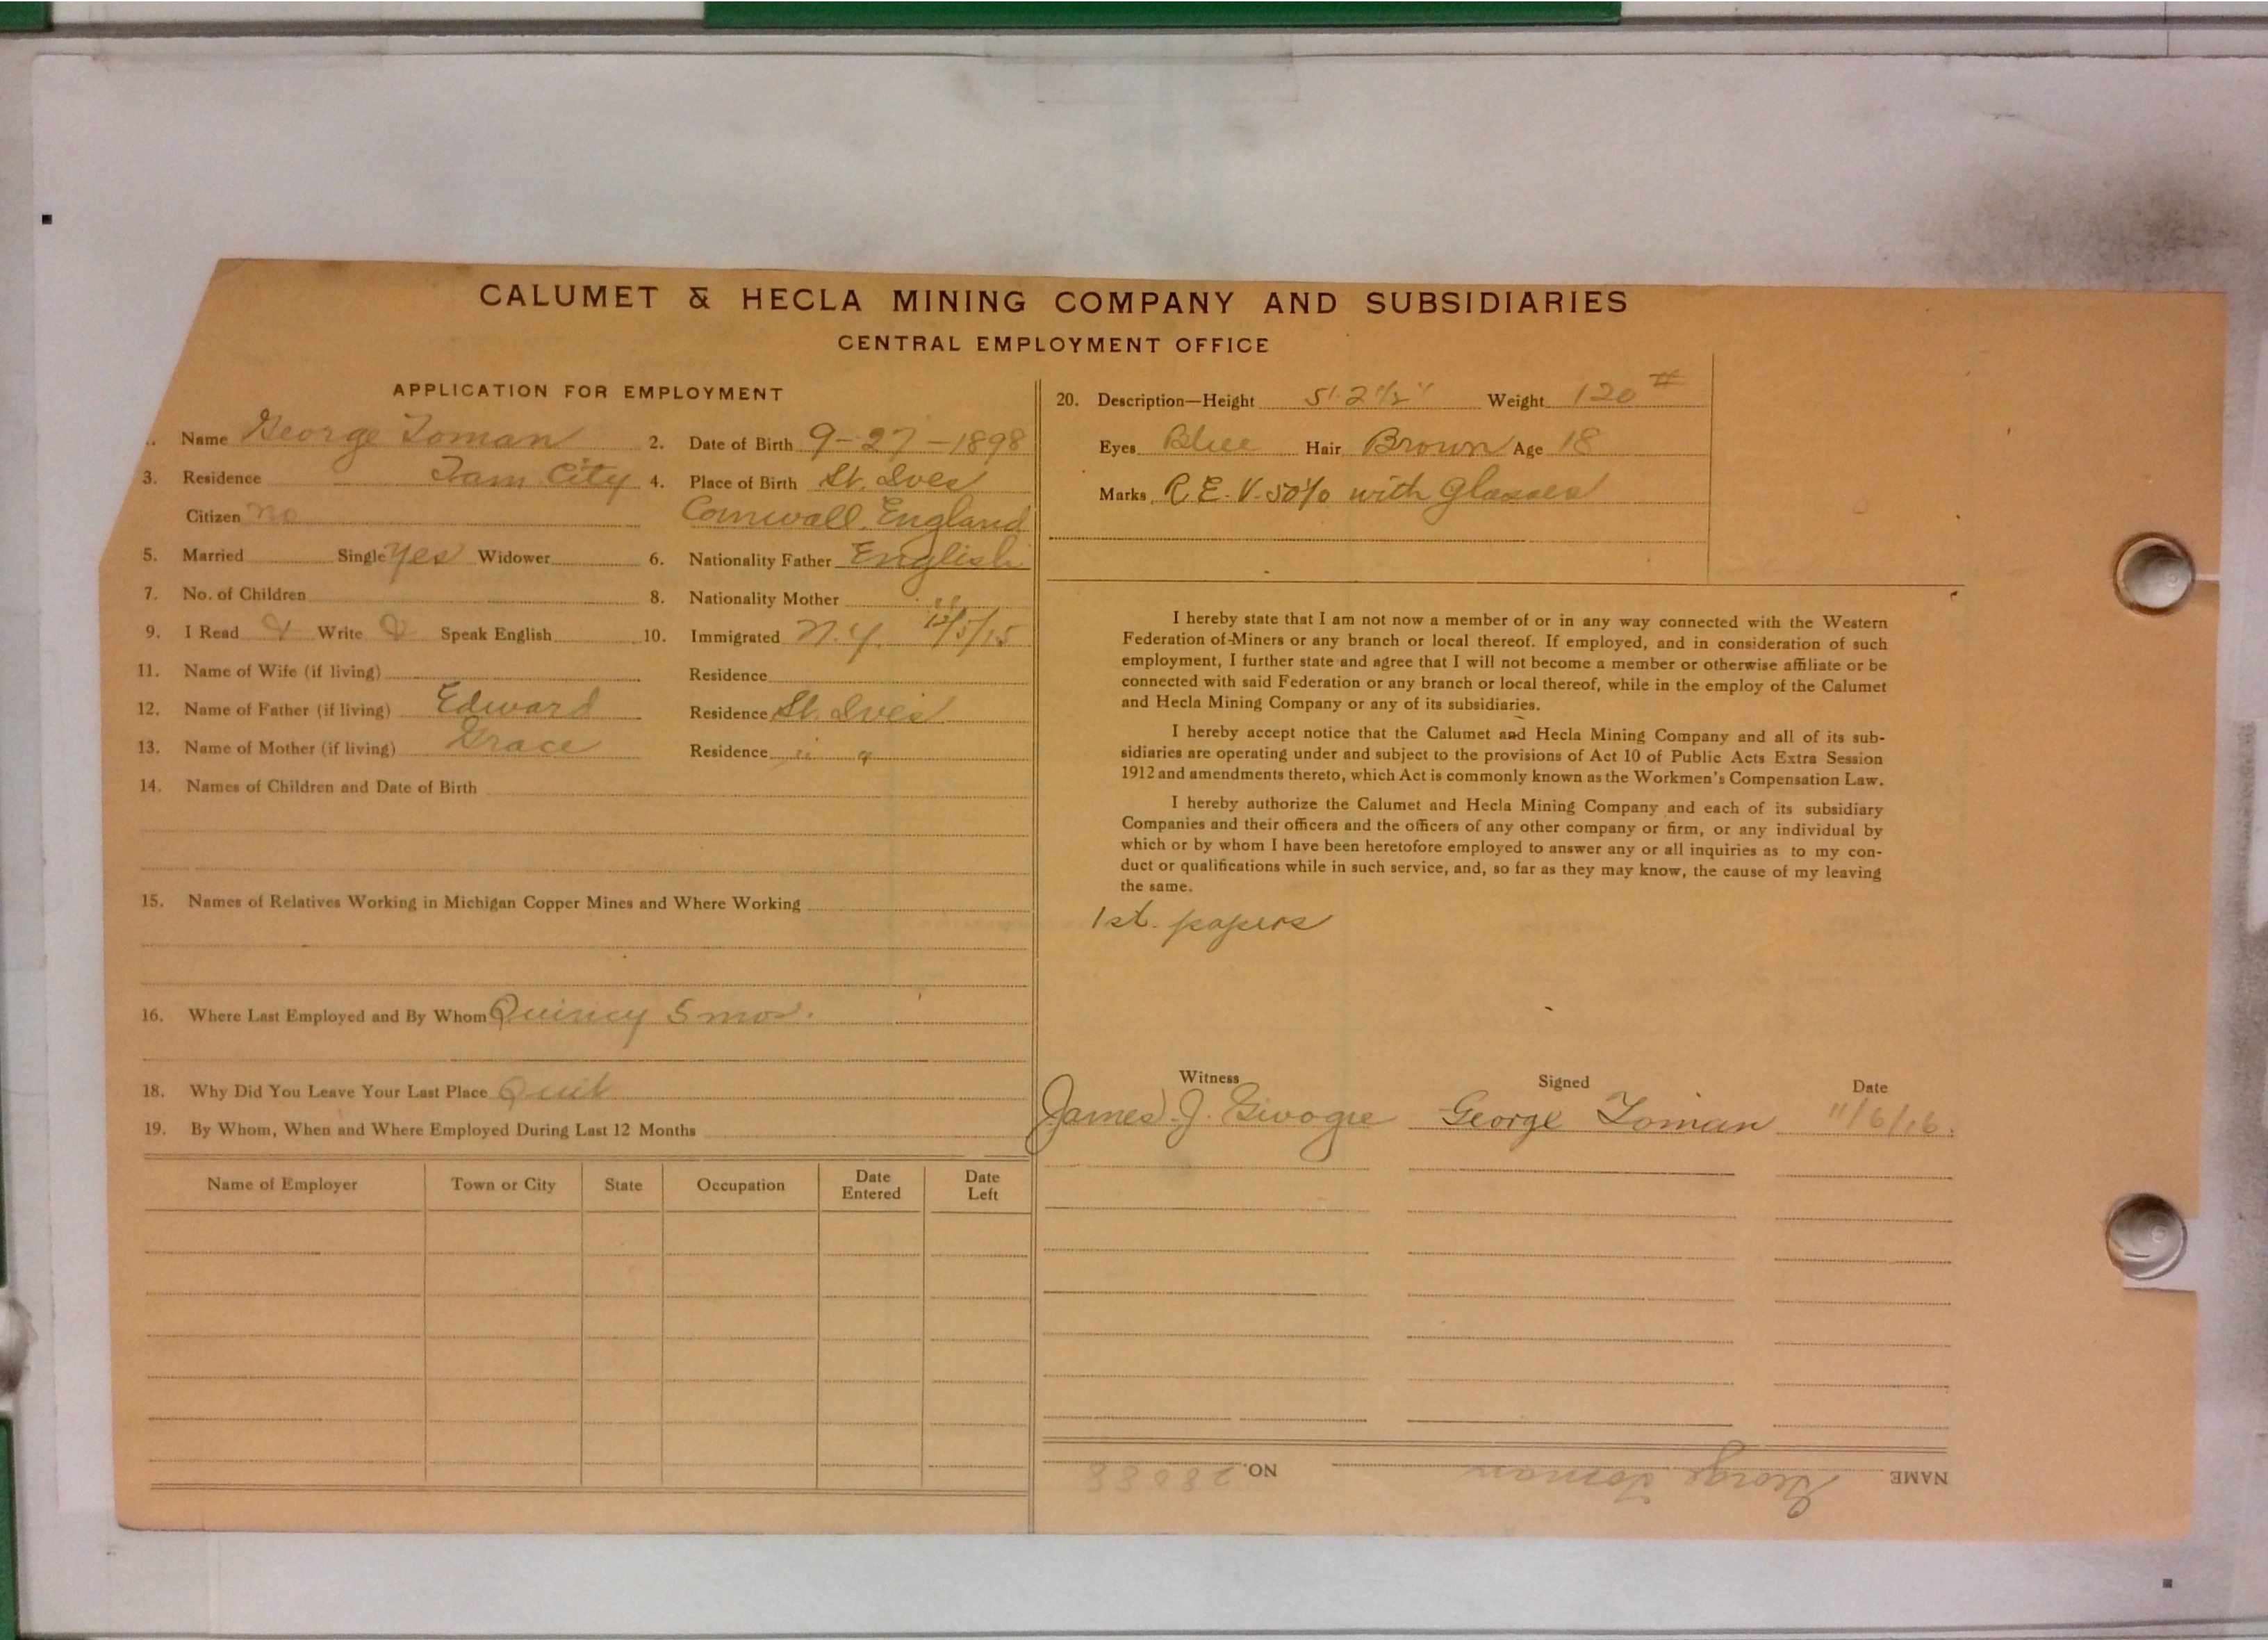 CALUMET & HECLA MINING COMPANY AND SUBSIDIARIES
CENTRAL EMPLOYMENT OFFICE
APPLICATION FOR EMPLOYMENT
Name George Toman 2. Date of Birth 9-27-1898
3. Residence Tam City 4. Place of Birth St. Ives
Citizen no Cornwall, England
5. Married Single Yes Widower 6. Nationality Father English
7. No. of Children 8. Nationality Mother " "
9. I Read Write Speak English 10. Immigrated N.Y. 12/5/15
11. Name of Wife (if living) Residence
12. Name of Father (if living) Edward Residence St. Ives
13. Name of Mother (if living) Grace Residence " "
14. Names of Children and Date of Birth
15. Names of Relatives Working in Michigan Copper Mines and Where Working
16. Where Last Employed and By Whom Quincy 5 mos.
18. Why Did You Leave Your Last Place Quit
19. By Whom, When and Where Employed During Last 12 Months
Name of Employer Town or City State Occupation Date Entered Date Left
20. Description—Height 5' 2 1/2" Weight 120 #
Eyes Blue Hair Brown Age 18
Marks R.E.V. 50% with glasses
I hereby state that I am not now a member of or in any way connected with the Western
Federation of Miners or any branch or local thereof. If employed, and in consideration of such
employment, I further state and agree that I will not become a member or otherwise affiliate or be
connected with said Federation or any branch or local thereof, while in the employ of the Calumet
and Hecla Mining Company or any of its subsidiaries.
I hereby accept notice that the Calumet and Hecla Mining Company and all of its sub-
sidiaries are operating under and subject to the provisions of Act 10 of Public Acts Extra Session
1912 and amendments thereto, which Act is commonly known as the Workmen's Compensation Law.
I hereby authorize the Calumet and Hecla Mining Company and each of its subsidiary
Companies and their officers and the officers of any other company or firm, or any individual by
which or by whom I have been heretofore employed to answer any or all inquiries as to my con-
duct or qualifications while in such service, and, so far as they may know, the cause of my leaving
the same.
1st. papers
Witness Signed Date
James J. George Toman 11/6/16.
NAME George Toman NO. 28088